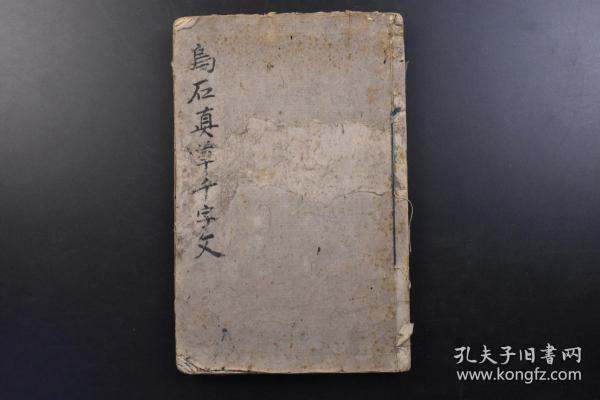 烏石真草千字文
孔夫子旧書网
www.kongfz.com